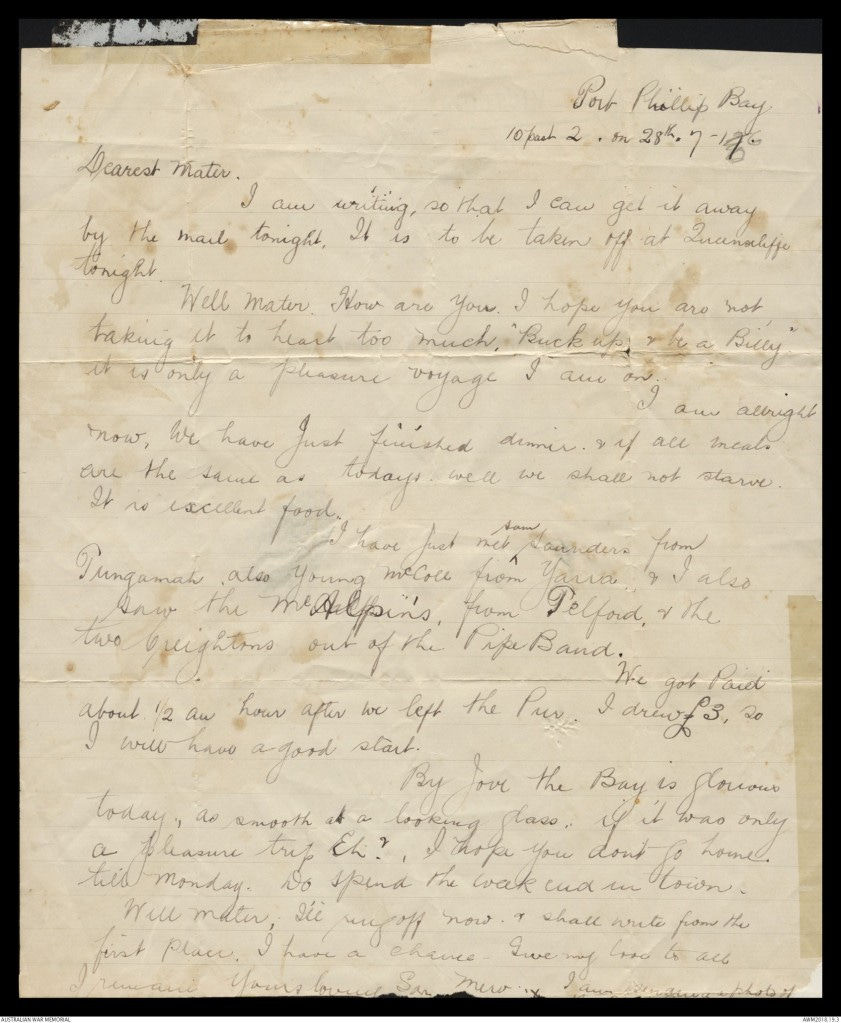 Port Phillip Bay
10 past 2. on 28th. 7-16
Dearest Mater.
I am writing, so that I can get it away
by the mail tonight, It is to be taken off at Queenscliffe
tonight.
Well Mater. How are you. I hope you are not
taking it to heart too much, "Buck up, & be a Billy"
it is only a pleasure voyage I am on.
I am allright
now, We have Just finished dinner. & if all meals
are the same as todays. well we shall not starve.
It is excellent food.
I have Just met Sam Saunders from
Tungamah, also Young McColl from Yarra, & I also
saw the McAlpin's, from Telford, & the
two Creightons out of the Pipe Band.
We got Paid
about 1/2 an hour after we left the Pier. I drew £3, so
I will have a good start.
By Jove the Bay is glorious
today, as smooth as a looking glass, if it was only
a pleasure trip Eh?, I hope you dont go home
till Monday. Do spend the week end in town.
Well Mater, I'll ring off now. & shall write from the
first place, I have a chance. Give my love to all
I remain Yours loving Son Merv. I am photo of
AUSTRALIAN WAR MEMORIAL
AWM2018.19.3